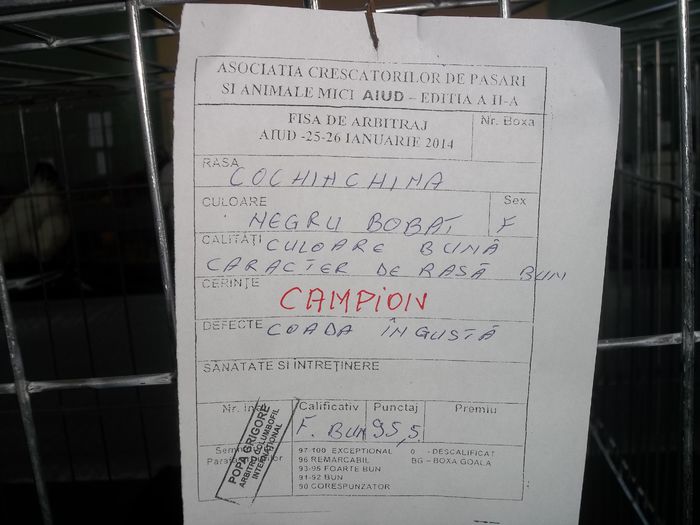 ASOCIATIA CRESCATORILOR DE PASARI
SI ANIMALE MICI AIUD – EDITIA A II-A
FISA DE ARBITRAJ
AIUD -25-26 IANUARIE 2014
Nr. Boxa
RASA
COCHINCHINA
CULOARE
NEGRU BOBAT
Sex
F
CALITĂȚI CULOARE BUNĂ
CARACTER DE RASĂ BUN
CERINȚE
CAMPION
DEFECTE COADA ÎNGUSTĂ
SĂNATATE SI ÎNTREȚINERE
Nr. Calificativ Punctaj Premiu
F. BUN 95,5
97 100 EXCEPTIONAL 0 - DESCALIFICAT
96 REMARCABIL BG – BOXA GOALA
93-95 FOARTE BUN
91-92 BUN
90 CORESPUNZATOR
POPA GRIGORE
ARBITRU COLUMBOFIL
INTERNATIONAL